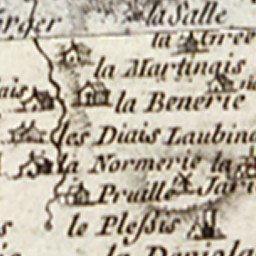 la Salle
la Gree
la Martinais
la Benerie
les Diais Laubin
la Normerie la
Pruille Jari
le Plessis